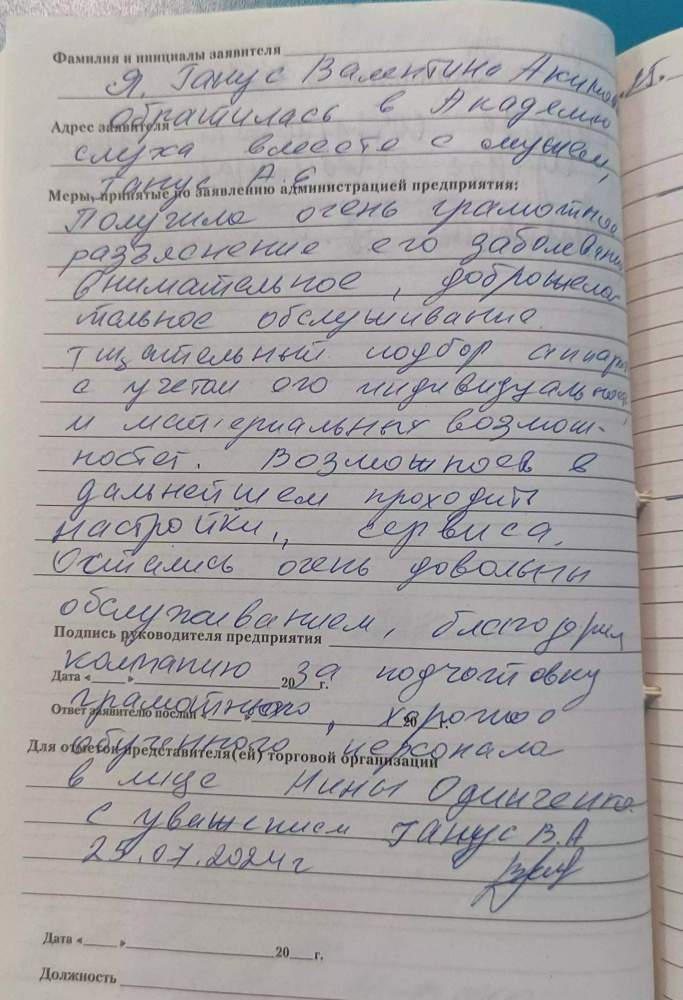 Фамилия и инициалы заявителя
Я, Ганус Валентина Аким
обратилась в Академию
Адрес заявителя
слуха вместе с мужем,
Ганус А.Е
Меры, принятые по заявлению администрацией предприятия:
Получила очень грамотное
раззяснение его заболевани
внимательное, доброжела
тельное обслуживание.
тщательный подбор аппара
с учетом его индивидуальных
и материальных возмож-
ностей. Возможность в
дальнейшем проходить
настройки, сервиса.
Остались очень довольны
обслуживанием, благодарим
Подпись руководителя предприятия
компанию за подготовку
Дата «____»____________20__г.
грамотного, хорошо
Ответ заявителю послан «        20    г.
обученного персонала
Для отметок представителя(ей) торговой организации
в лице Нины Одинченко
с уважением Ганус В.А
25.07.2024г
Дата «____»____________20__г.
Должность
25.